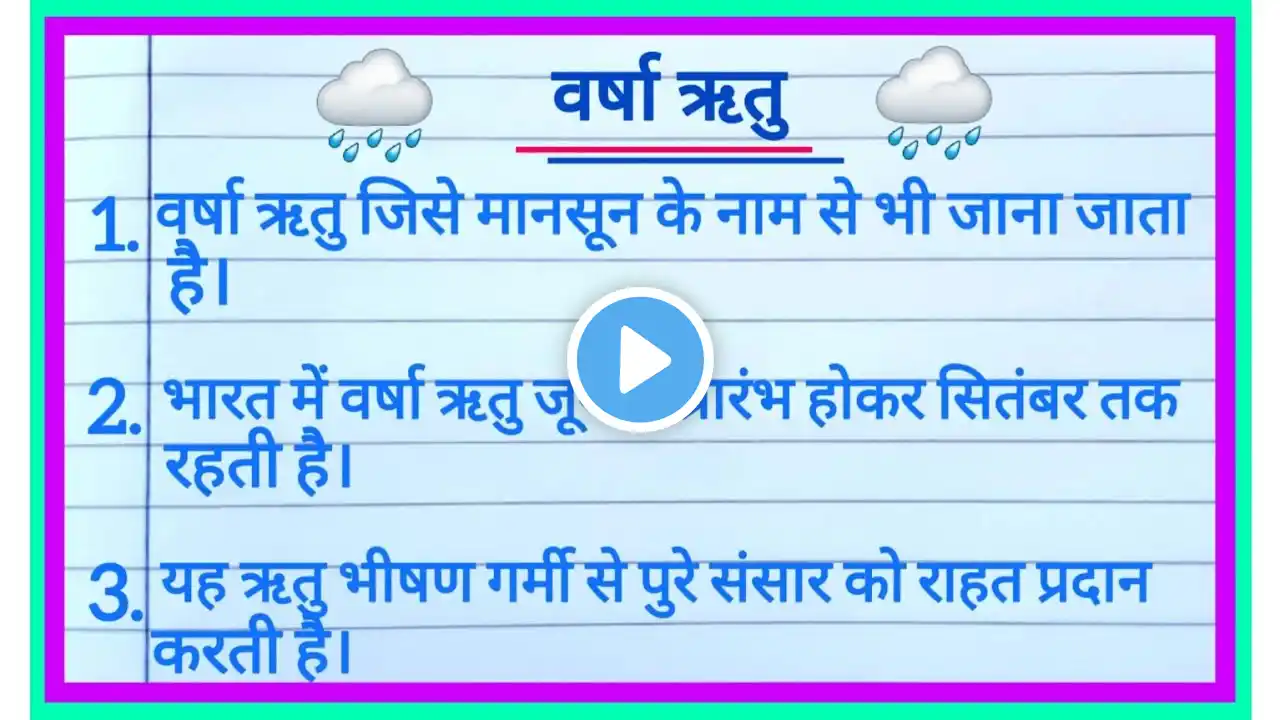 वर्षा ऋतु
1. वर्षा ऋतु जिसे मानसून के नाम से भी जाना जाता
है।
2. भारत में वर्षा ऋतु होकर सितंबर तक
रहती है।
3. यह ऋतु भीषण गर्मी से पुरे संसार को राहत प्रदान
करती है।